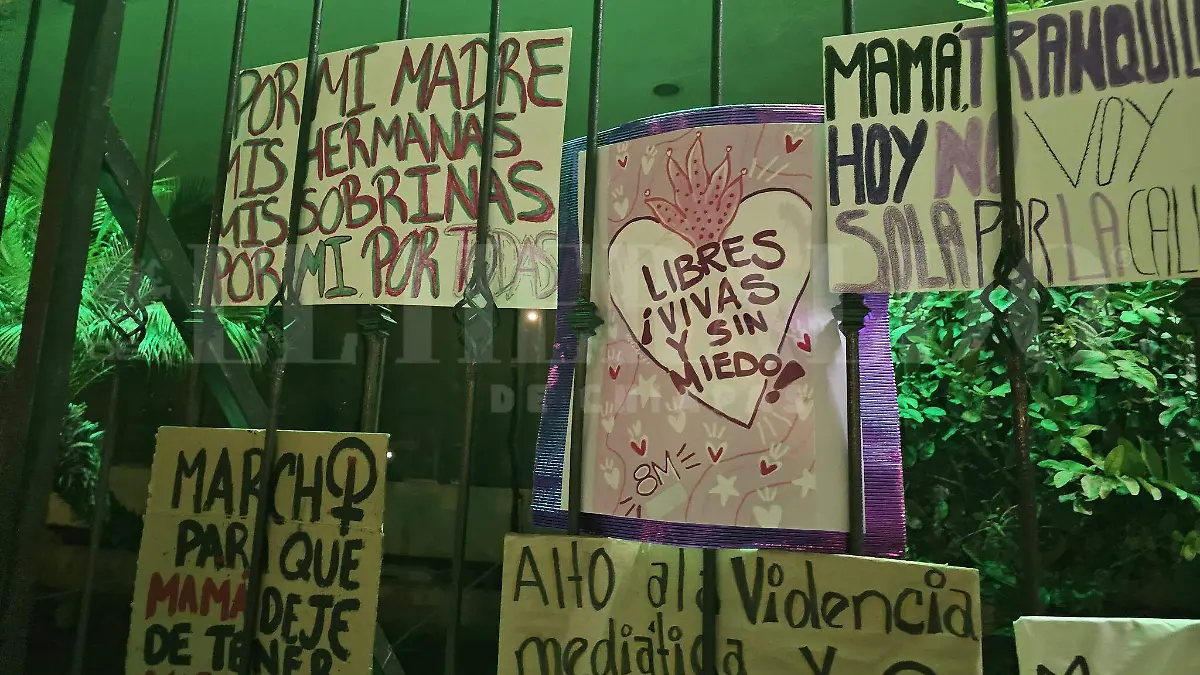 POR MI MADRE
MIS HERMANAS
MIS SOBRINAS
POR MI POR TODAS
LIBRES
¡VIVAS
Y SIN
MIEDO!
8M
MAMÁ, TRANQUIL
HOY NO VOY
SOLA POR LA CALL
MARCHO
PARA QUE
MAMÁ DEJE
DE TENER
Alto a la Violencia
mediática y
EL HERALDO
DE CHIAPAS